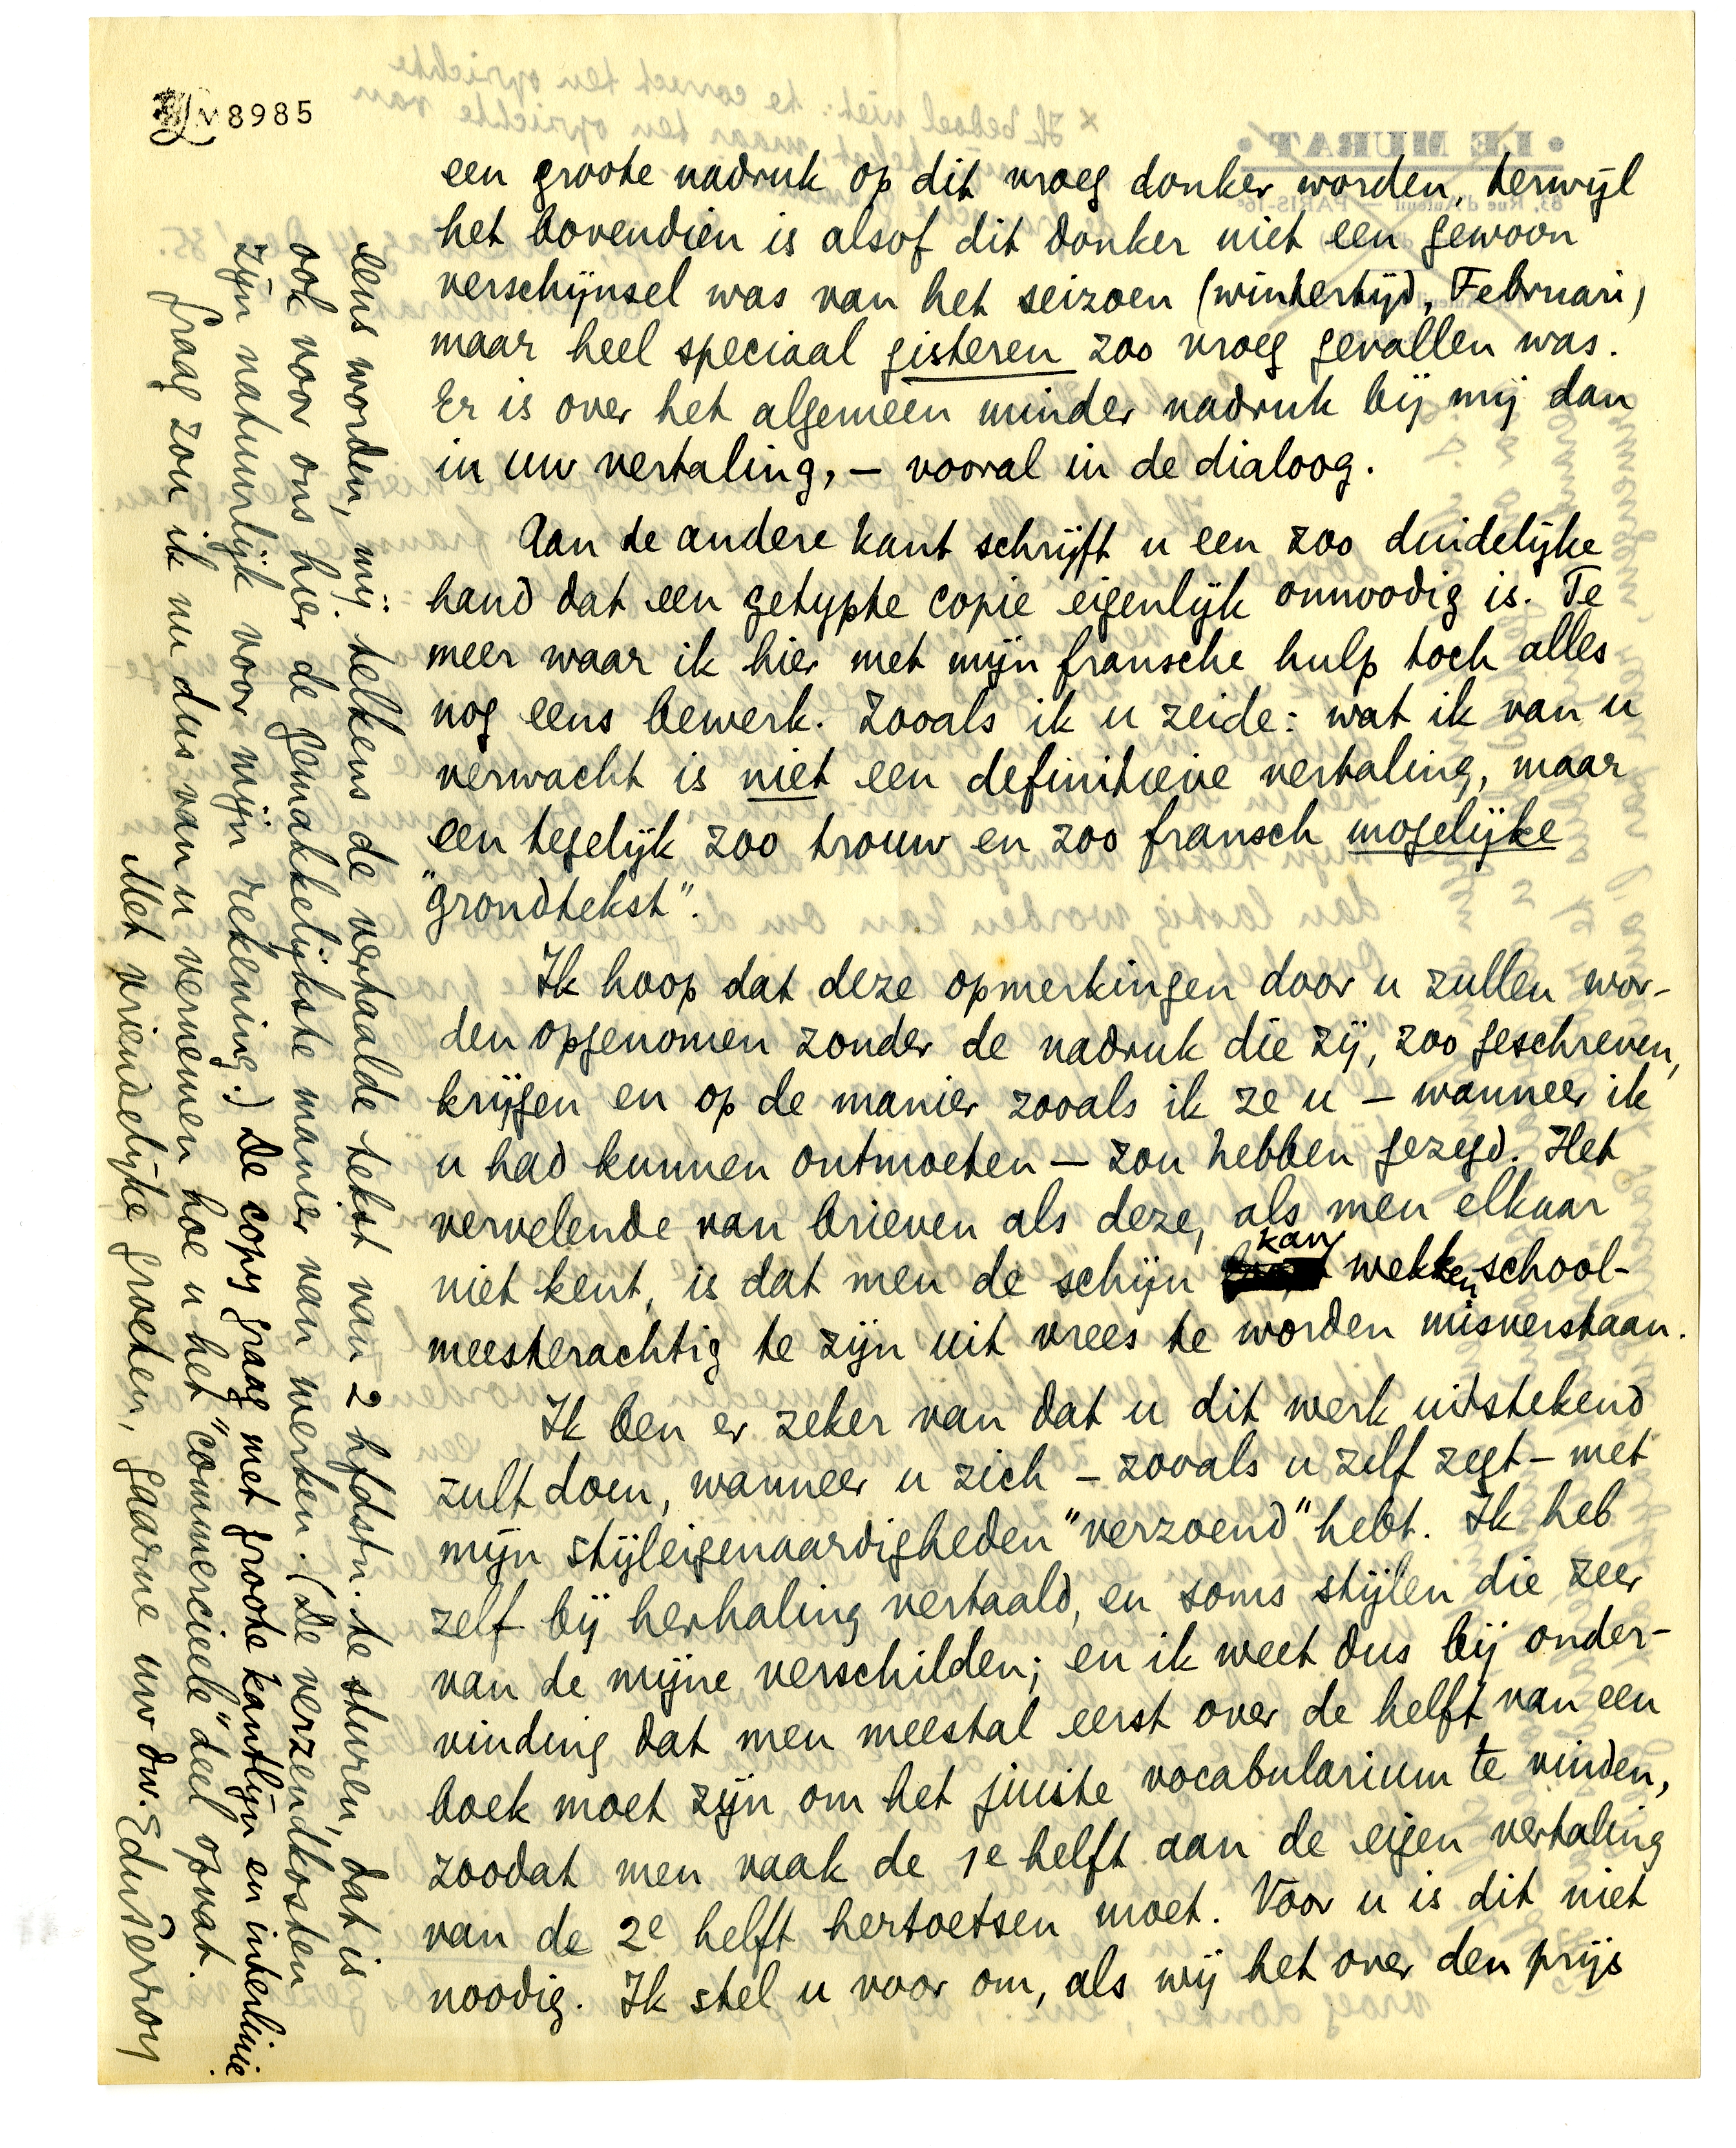 8985
een groote nadruk op dit vroeg donker worden, terwijl
het bovendien is alsof dit donker niet een gewoon
verschijnsel was van het seizoen (wintertijd, Februari)
maar heel speciaal gisteren zoo vroeg gevallen was.
Er is over het algemeen minder nadruk bij mij dan
in uw vertaling, — vooral in de dialoog.
Aan de andere kant schrijft u een zoo duidelijke
hand dat een getypte copie eigenlijk onnoodig is. Te
meer waar ik hier met mijn fransche hulp toch alles
nog eens bewerk. Zooals ik u zeide: wat ik van u
verwacht is niet een definitieve vertaling, maar
een tegelijk zoo trouw en zoo fransch mogelijke
"grondtekst".
Ik hoop dat deze opmerkingen door u zullen wor-
den opgenomen zonder de nadruk die zij, zoo geschreven,
krijgen en op de manier zooals ik ze u — wanneer ik
u had kunnen ontmoeten — zou hebben gezegd. Het
vervelende van brieven als deze, als men elkaar
niet kent, is dat men de schijn kan wekken school-
meesterachtig te zijn uit vrees te worden misverstaan.
Ik ben er zeker van dat u dit werk uitstekend
zult doen, wanneer u zich — zooals u zelf zegt — met
mijn stijleigenaardigheden "verzoend" hebt. Ik heb
zelf bij herhaling vertaald, en soms stijlen die zeer
van de mijne verschilden; en ik weet dus bij onder-
vinding dat men meestal eerst over de helft van een
boek moet zijn om het juiste vocabularium te vinden,
zoodat men vaak de 1e helft aan de eigen vertaling
van de 2e helft hertoetsen moet. Voor u is dit niet
noodig. Ik stel u voor om, als wij het over den prijs
eens worden, mij telkens de vertaalde tekst van 2 hfdstn. te sturen, dat is
ook voor ons hier de gemakkelijkste manier van werken. (De verzendkosten
zijn natuurlijk voor mijn rekening.) De copy graag met groote kantlijn en interlinie.
Graag zou ik nu dus van u vernemen hoe u het "commercieele" deel opvat.
Met vriendelijke groeten, gaarne uw dw. EduPerron